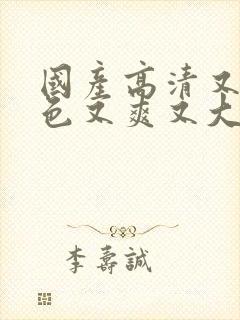 國產高清又
色又爽又大
李壽誠